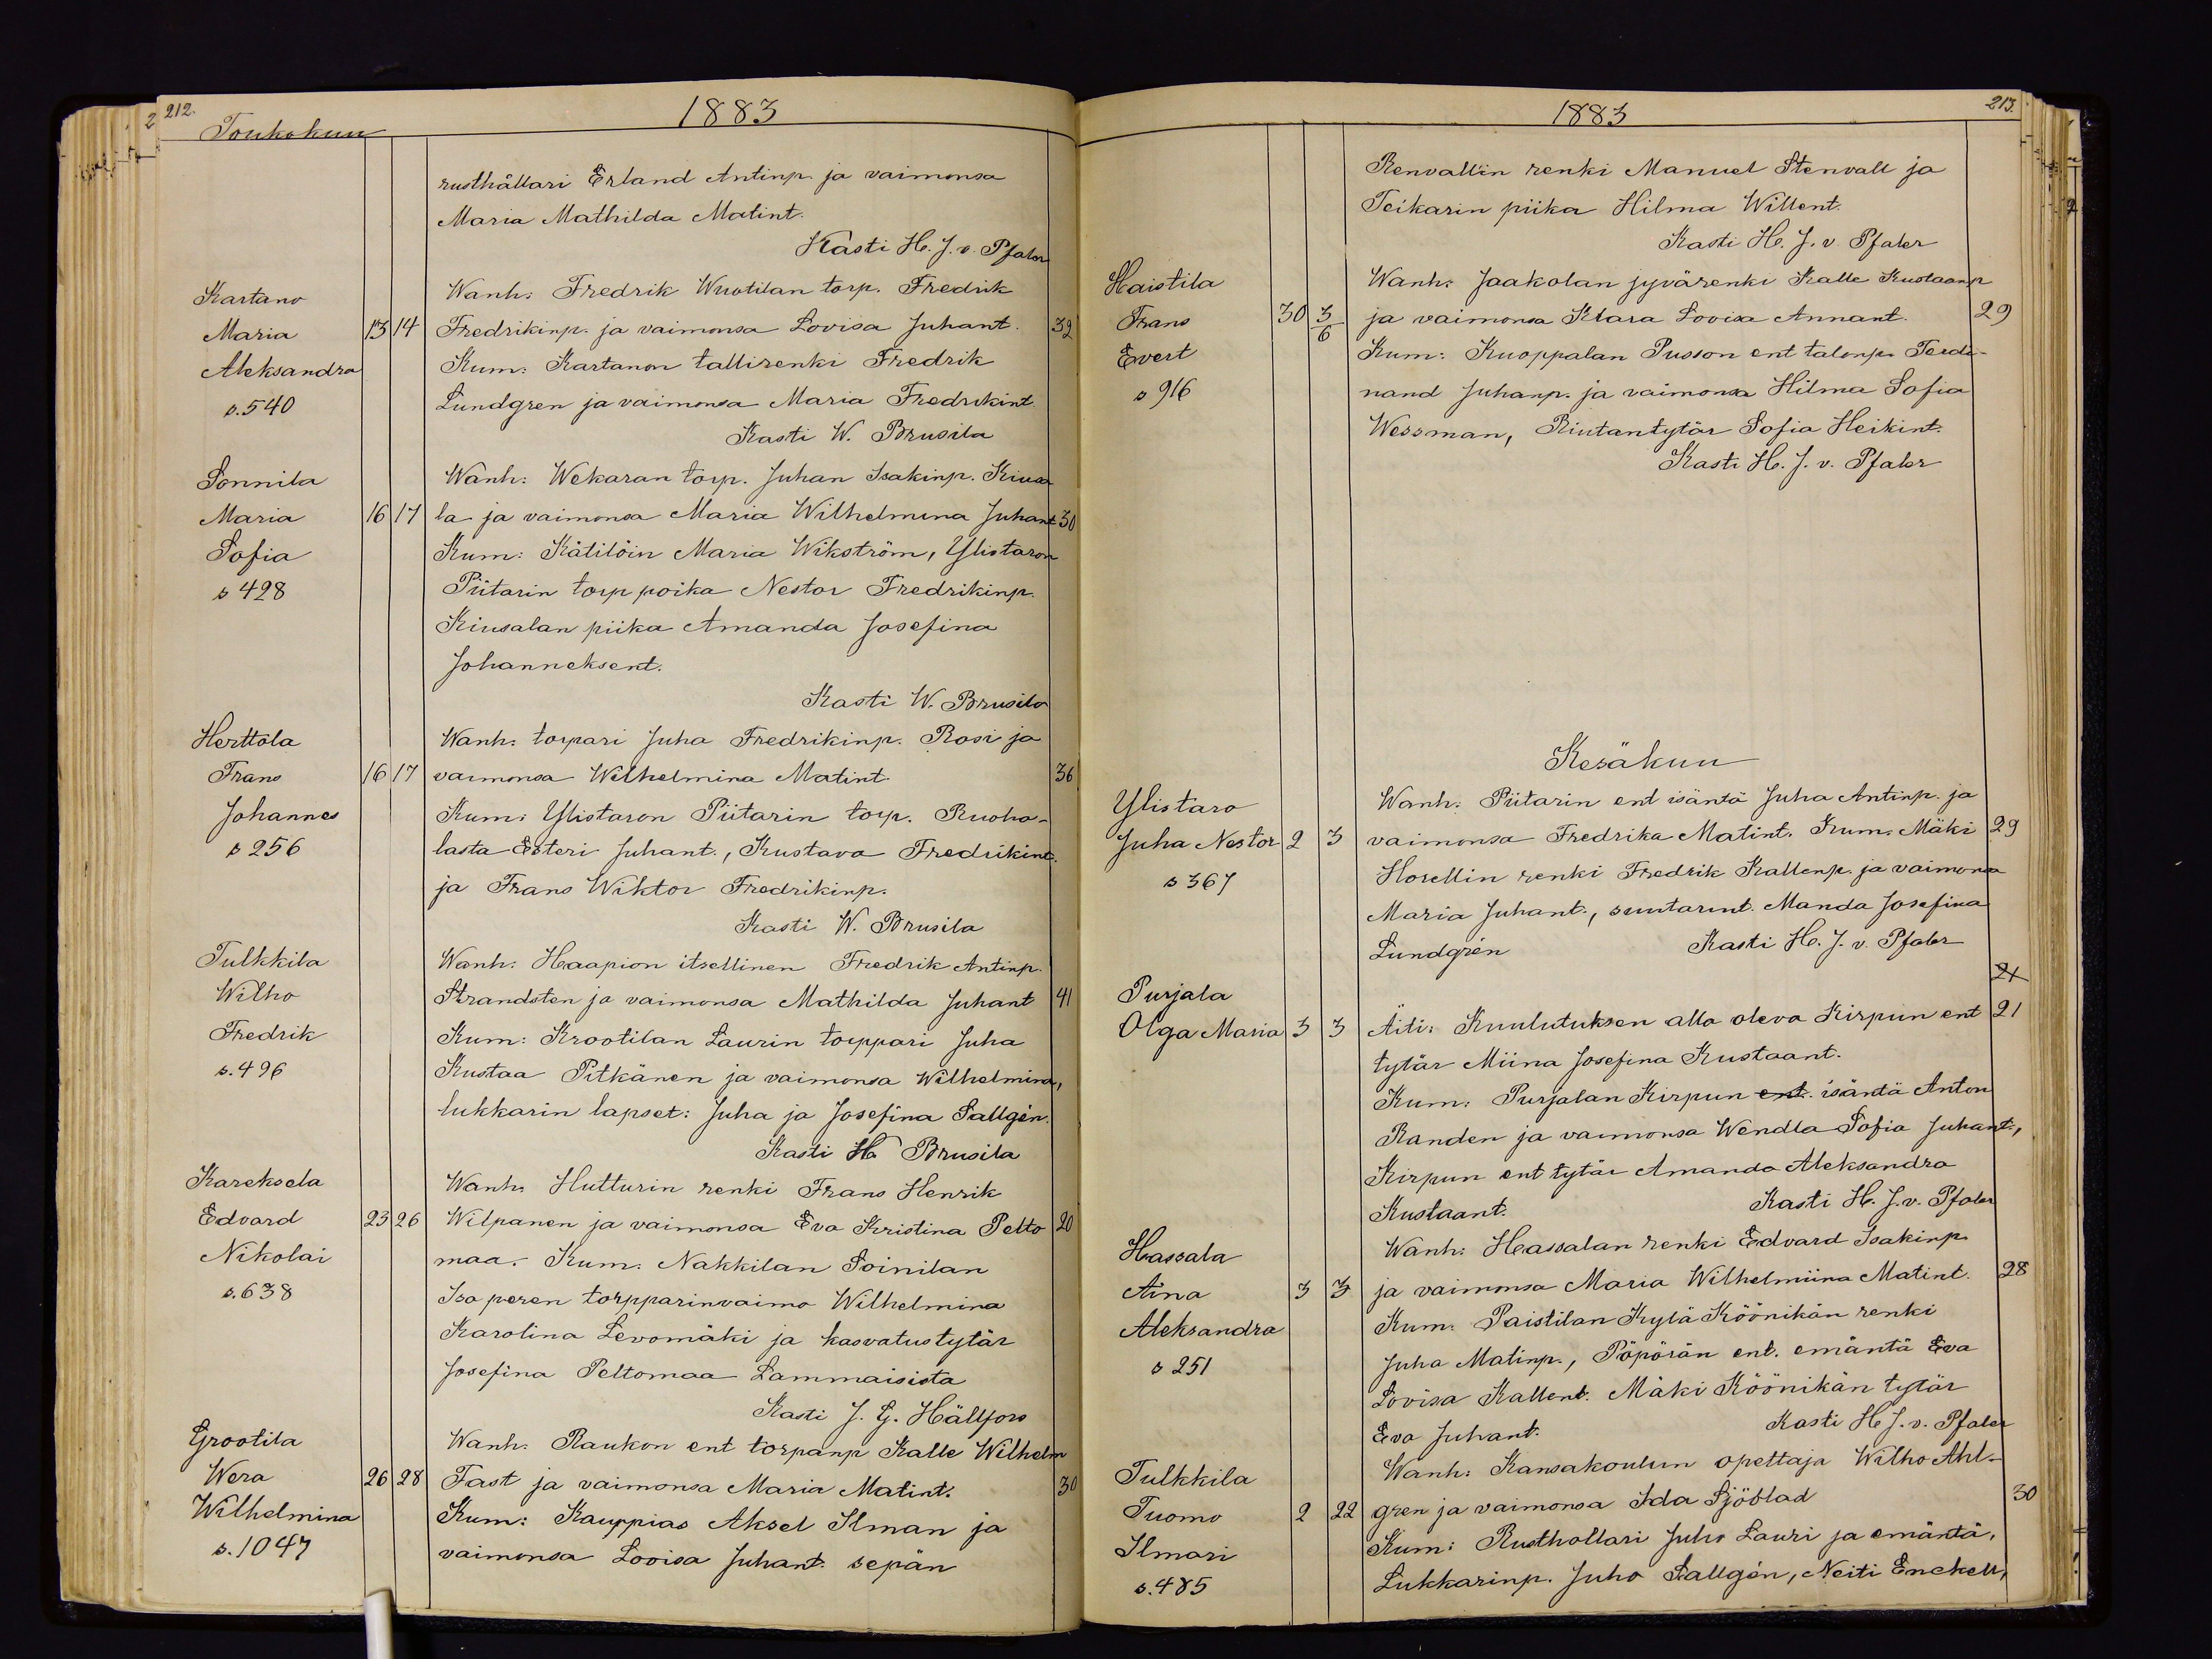 212.
Toukokuu
1883
rusthållari Erland Antinp. ja vaimonsa
Maria Mathilda Matint.
Kasti H. J. v. Pfaler
Kartano
Maria
Aleksandra
s. 540
13 14
Wanh: Fredrik Wuotilan torp. Fredrik
Fredrikinp. ja vaimonsa Lovisa Juhant. 32
Kum: Kartanon tallirenki Fredrik
Lundgren ja vaimonsa Maria Fredrikint
Kasti W. Brusila
Sonnila
Maria
Sofia
s 428
16 17
Wanh: Wekaran torp. Juhan Isakinp. Kiusa
la ja vaimonsa Maria Wilhelmina Juhant 30
Kum: Kätilöin Maria Wikström, Ylistaron
Piitarin torp poika Nestor Fredrikinp.
Kiusalan piika Amanda Josefina
Johanneksent.
Kasti W. Brusila
Herttola
Frans
Johannes
s 256
16 17
Wanh: torpari Juha Fredrikinp. Rosi ja
vaimonsa Wilhelmina Matint. 36
Kum: Ylistaron Piitarin torp. Ruoho-
lasta Esteri Juhant., Kustava Fredrikint.
ja Frans Wiktor Fredrikinp.
Kasti W. Brusila
Tulkkila
Wilho
Fredrik
s. 496
Wanh: Haapion itsellinen Fredrik Antinp.
Strandsten ja vaimonsa Mathilda Juhant 41
Kum: Krootilan Laurin torppari Juha
Kustaa Pitkänen ja vaimonsa Wilhelmina,
lukkarin lapset: Juha ja Josefina Sallgén.
Kasti W. Brusila
Kareksela
Edvard
Nikolai
s. 638
23 26
Wanh. Hutturin renki Frans Henrik
Wilpanen ja vaimonsa Eva Kristina Pelto 20
maa. Kum: Nakkilan Soinilan
Iso peren torpparinvaimo Wilhelmina
Karolina Levomäki ja kasvatustytär
Josefina Peltomaa Lammaisista
Kasti J. G. Hällfors
Grootila
Wera
Wilhelmina
s. 1047
26 28
Wanh. Raukon ent torpanp Kalle Wilhelm
Fast ja vaimonsa Maria Matint. 30
Kum: Kauppias Aksel Ilman ja
vaimonsa Lovisa Juhant. sepän
1883
213.
Renvallin renki Manuel Stenvall ja
Teikarin piika Hilma Willent.
Kasti H. J. v. Pfaler
Haistila
Frans
Evert
s 916
30 3/6
Wanh: Jaakolan jyvärenki Kalle Kustaanp
ja vaimonsa Klara Lovisa Annant. 29
Kum: Kuoppalan Pusson ent talonp. Ferdi-
nand Juhanp. ja vaimonsa Hilma Sofia
Wessman, Riutantytär Sofia Heikint.
Kasti H. J. v. Pfaler
Kesäkuu
Ylistaro
Juha Nestor
s 367
2 3
Wanh: Piitarin ent isäntä Juha Antinp. ja
vaimonsa Fredrika Matint. Kum: Mäki 29
Horellin renki Fredrik Kallenp. ja vaimonsa
Maria Juhant., suutarint. Manda Josefina
Lundgrén Kasti H. J. v. Pfaler
Purjala
Olga Maria
3 3
21
Äiti: Kuulutuksen alla oleva Kirpun ent 21
tytär Miina Josefina Kustaant.
Kum: Purjalan Kirpun ent. isäntä Anton
Randen ja vaimonsa Wendla Sofia Juhant.,
Kirpun ent tytär Amanda Aleksandra
Kustaant. Kasti H. J. v. Pfaler
Hassala
Aina
Aleksandra
s 251
3 3
Wanh: Hassalan renki Edvard Isakinp.
ja vaimonsa Maria Wilhelmiina Matint. 28
Kum: Paistilan Kylä Köönikän renki
Juha Matinp., Pöpörän ent. emäntä Eva
Lovisa Kallent. Mäki Köönikän tytär
Eva Juhant. Kasti H J. v. Pfaler
Tulkkila
Tuomo
Ilmari
s. 485
2 22
Wanh: Kansakoulun opettaja Wilho Ahl-
gren ja vaimonsa Ida Sjöblad 30
Kum: Rusthollari Juho Lauri ja emäntä,
Lukkarinp. Juho Sallgén, Neiti Enckell,